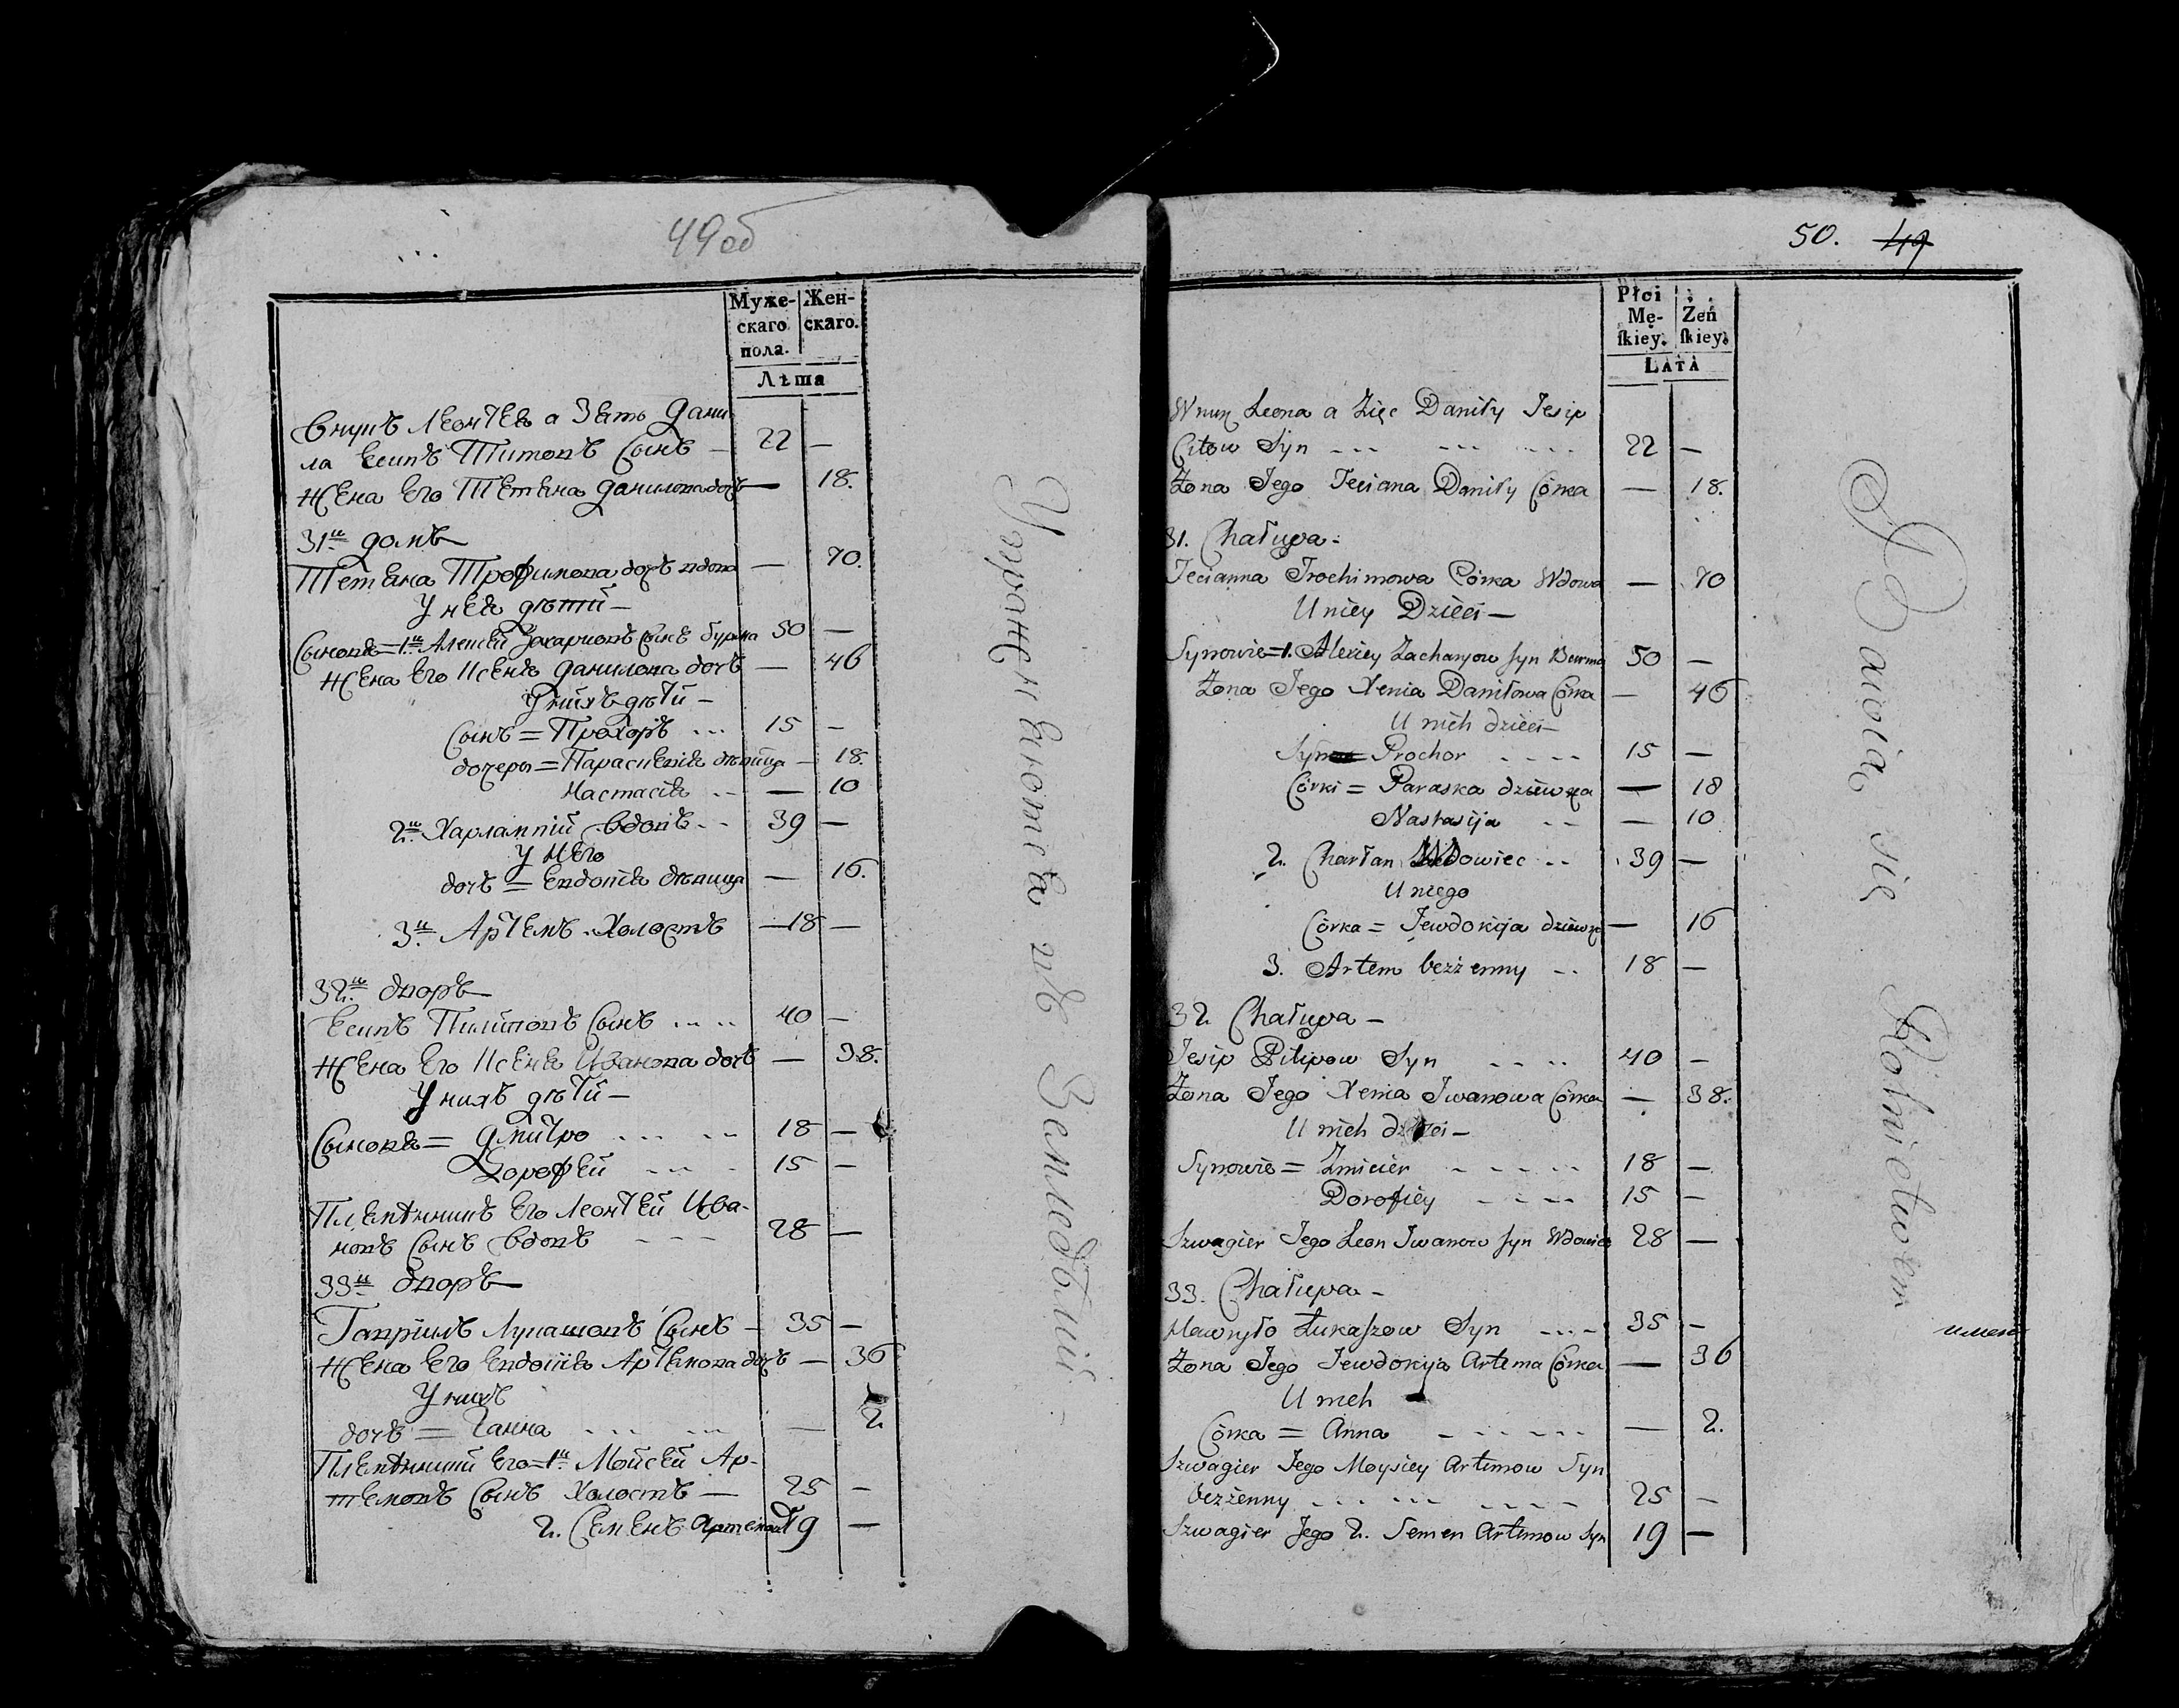 49об
Муже-
скаго
пола.
Жен-
скаго.
Лѣта
Внукъ Леонтея а Зять Дани
ла Есипъ Титовъ Сынъ — 22 —
Жена Его Тетяна Данилова дочъ — 18.
31й домъ
Тетяна Трофимова дочъ вдова — 70.
У нея дѣти —
Сыновя = 1й Алексѣй Захариовъ Сынъ Бурма 50 —
Жена Его Ксеня Данилова дочъ — 46
У нихъ дѣти —
Сынъ = Прохоръ ... 15 —
дочеры = Параскевія дѣвица — 18.
Настасія -- — 10
2й Харлампій Вдовъ -- 39 —
У Него
дочъ = Евдокія дѣвица — 16.
3й Артемъ Холостъ — 18 —
32й дворъ
Есипъ Пилиповъ Сынъ ... .. 40 —
Жена Его Ксеня Иванова дочъ — 38.
У нихъ дѣти —
Сыновя = Дмитро ... .. 18 —
Дорофей ... . 15 —
Племянникъ Его Леонтей Ива-
новъ Сынъ Вдовъ --- 28 —
33й дворъ
Гаврилъ Лукашовъ Сынъ — 35 —
Жена Его Евдокія Артемова дочъ — 36
У нихъ
дочъ = Ганна ... ... — 2
Племянники Его = 1й Мойсей Ар-
темовъ Сынъ Холостъ — 25 —
2. Семенъ Артемовъ 19 —
Упражняются въ Земледѣліи -
50. 49
Płci
Mę-
ſkiey.
Żeń
ſkiey.
LATA
Wnuk Leona a Zięc Daniły Jesip
Citow Syn --- --- --- 22 —
Żona Jego Teciana Daniły Córka — 18.
31. Chałupa -
Tecianna Trochimowa Córka Wdowa — 70
U niey Dzieci —
Synowie = 1. Alexiey Zacharjow syn Burma 50 —
Żona Jego Xenia Daniłowa Córka — 46
U nich dzieci —
Syn = Prochor - - - - 15 —
Córki = Paraska dziewka — 18
Nastasija -- — 10
2. Charłan Wdowiec -- 39 —
U niego
Córka = Jewdokija dziewka — 16
3. Artem bezżenny -- 18 —
32 Chałupa —
Jesip Pilipow Syn -- -- 40 —
Żona Jego Xenia Iwanowa Córka — 38.
U nich dzieci —
Synowie = Zmicier - - - -- 18 —
Dorofiey - - -- 15 —
Szwagier Jego Leon Iwanow syn Wdowiec 28 —
33. Chałupa -
Hawryło Łukaſzow Syn --- - 35 —
Żona Jego Jewdokija Artema Córka — 36
U nich
Córka = Anna - -- -- — 2.
Szwagier Jego Moysiey Artimow Syn
bezżenny --- --- ---- 25 —
Szwagier Jego 2. Semen Artimow Syn 19 —
Bawią się Rolnictwem